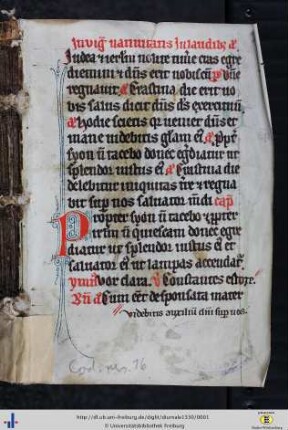 In vigil nativitatis in laudibus a
Judea et ierlm nolite timere cras egre
diemini et dns erit nobiscum
a Crastina die erit vo
bis salus dicit dns deus exercituum
a Hodie scietis quia veniet dns et
mane videbitis glam ei a Propter
syon non tacebo donec egrediatur ut
splendor iustus ei a Crastina die
delebitur iniquitas tre et regna
bit sup nos salvator mdi cap
Propter syon non tacebo et propter
irlm non quiescam donec egre
diatur ut splendor iustus ei et
salvator ei ut lampas accendat
ymn Vox clara V Constantes estote
a Cum esset desponsata mater
videbitis auxilium dni sup vos
Cod. 
http://dl.ub.uni-freiburg.de/diglit/diurnale1330/0001
© Universitätsbibliothek Freiburg